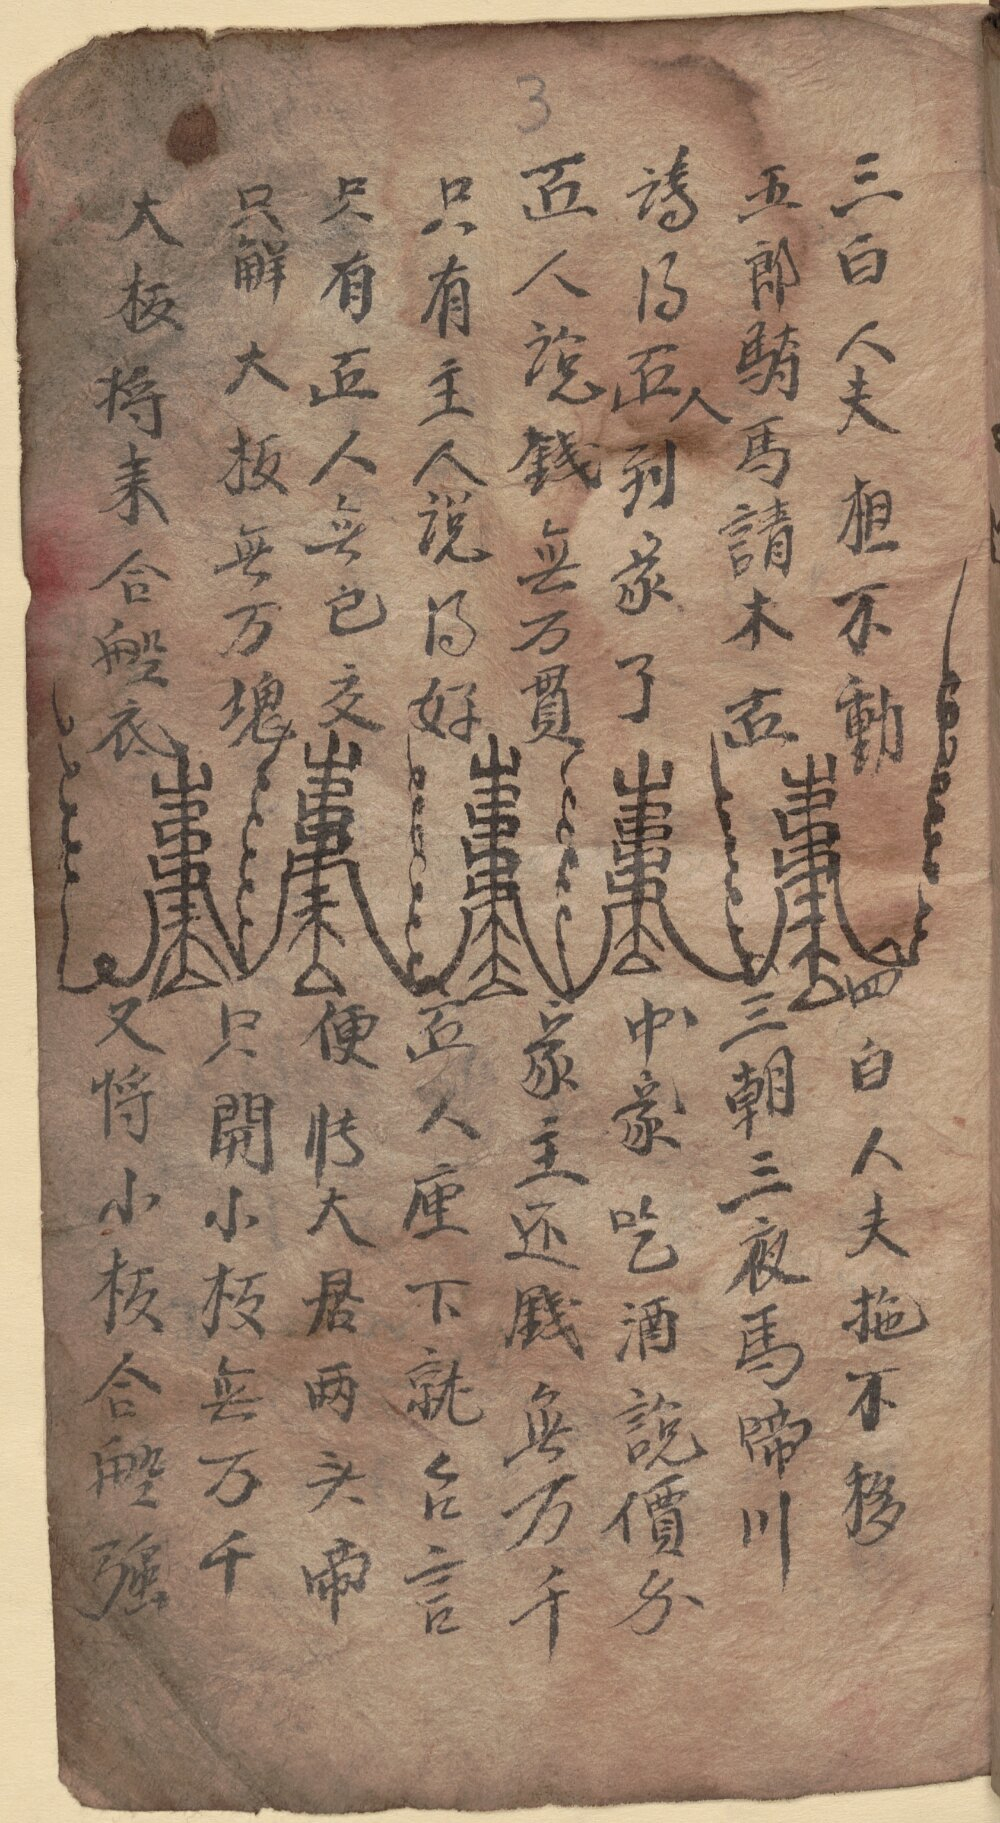 3
三白人夫抯不動
四白人夫拖不移
五郎騎馬請木匠
三朝三夜馬啼川
請得匠人到家了
中家吃酒說價分
匠人說錢無万貫
家主还錢無万千
只有主人說得好
匠人座下就台言
只有匠人無包交
便将大居兩头啼
只解大板無万塊
只開小板無万千
大板将来合盤底
又将小板合盤强